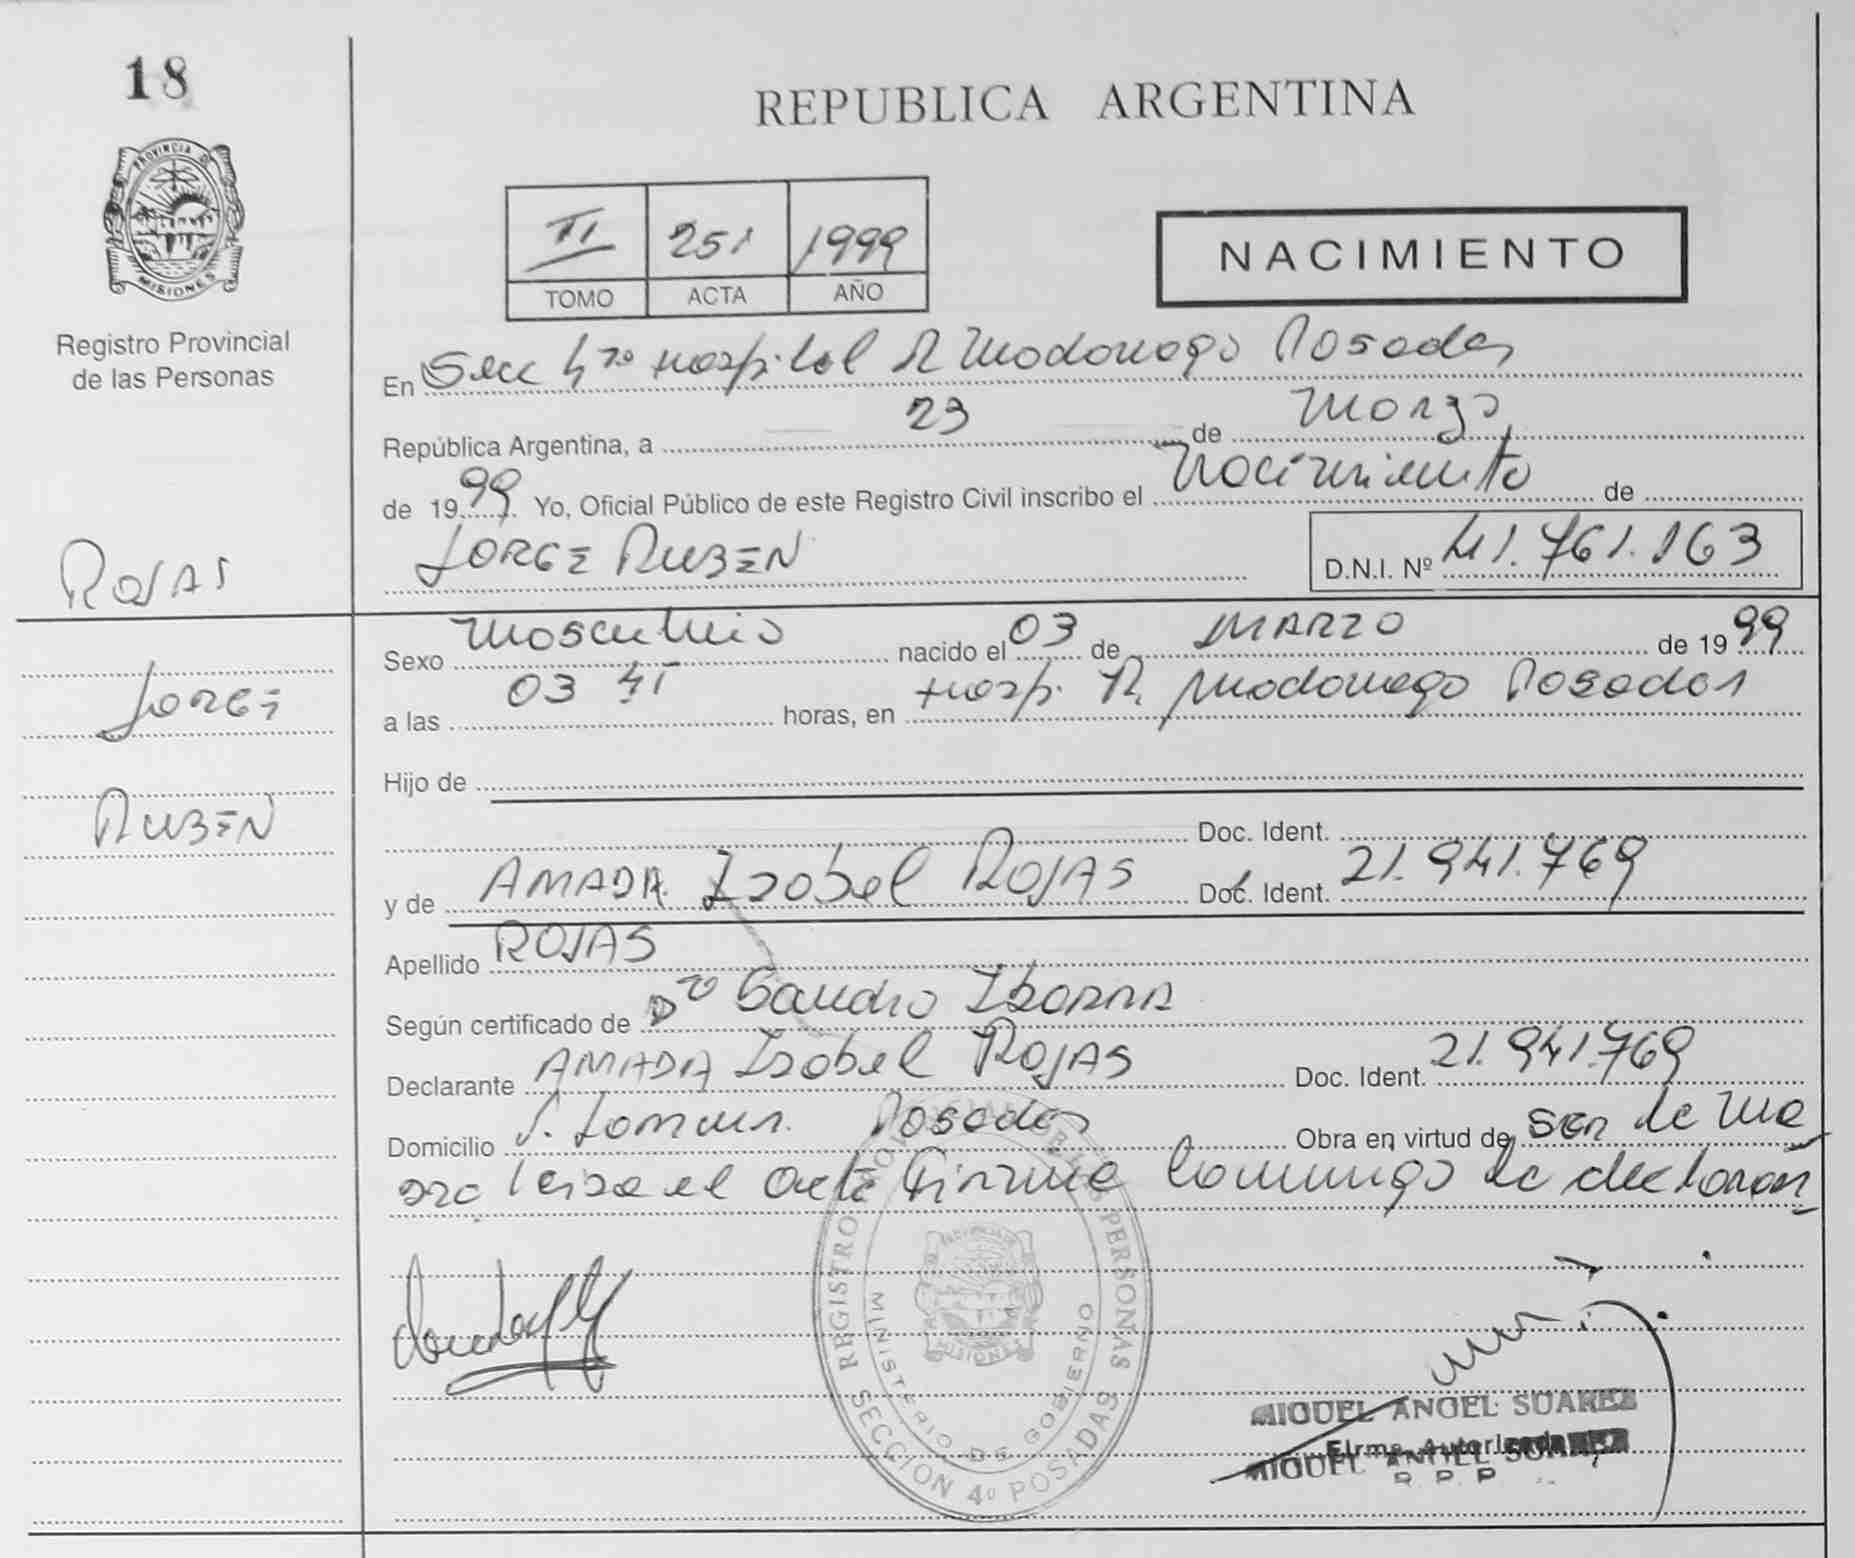 18
REPUBLICA ARGENTINA
PROVINCIA DE MISIONES
Registro Provincial
de las Personas
II 251 1999
TOMO ACTA AÑO
NACIMIENTO
En Secc 4ta Hospital R Madariaga Posadas
República Argentina, a 23 de Marzo
de 1999 Yo, Oficial Público de este Registro Civil inscribo el Nacimiento de
JORGE RUBEN D.N.I. Nº 41.761.163
ROJAS
JORGE
RUBEN
Sexo Masculino nacido el 03 de MARZO de 1999
a las 03 horas, en Hosp. R. Madariaga Posadas
Hijo de
Doc. Ident.
y de AMADA Isabel ROJAS Doc. Ident. 21.941.769
Apellido ROJAS
Según certificado de Dra Sandra Ibarra
Declarante AMADA Isabel ROJAS Doc. Ident. 21.941.769
Domicilio Posadas Obra en virtud de ser la ma
dre leida el acta firma conmigo la declaran
REGISTRO PERSONAS
MINISTERIO DE GOBIERNO
MISIONES
SECCION 4º POSADAS
MIGUEL ANGEL SUAREZ
Firma Autorizada
MIGUEL ANGEL SUAREZ
R. P. P